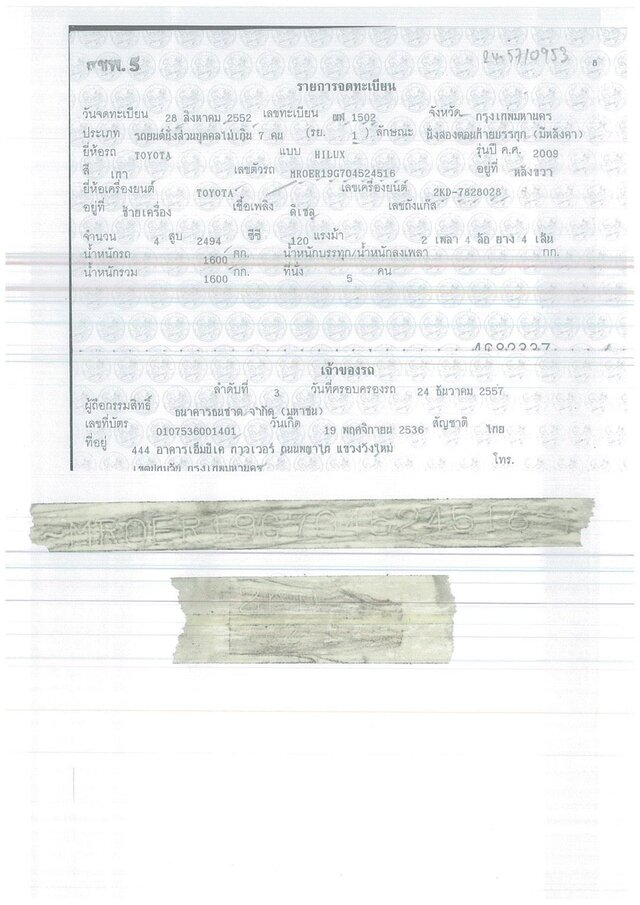 กชพ.5
8
รายการจดทะเบียน
วันจดทะเบียน 28 สิงหาคม 2552 เลขทะเบียน 1502 จังหวัด กรุงเทพมหานคร
ประเภท รถยนต์นั่งส่วนบุคคลไม่เกิน 7 คน (รย. 1) ลักษณะ นั่งสองตอนท้ายบรรทุก (มีหลังคา)
ยี่ห้อรถ TOYOTA แบบ HILUX รุ่นปี ค.ศ. 2009
สี เทา เลขตัวรถ MROER19G704524516 อยู่ที่ หลังขวา
ยี่ห้อเครื่องยนต์ TOYOTA เลขเครื่องยนต์ 2KD-7828028
อยู่ที่ ซ้ายเครื่อง เชื้อเพลิง ดีเซล เลขถังแก๊ส
จำนวน 4 สูบ 2494 ซีซี 120 แรงม้า 2 เพลา 4 ล้อ ยาง 4 เส้น
น้ำหนักรถ 1600 กก. น้ำหนักบรรทุก/น้ำหนักลงเพลา กก.
น้ำหนักรวม 1600 กก. ที่นั่ง 5 คน
เจ้าของรถ
ลำดับที่ 3 วันที่ครอบครองรถ 24 ธันวาคม 2557
ผู้ถือกรรมสิทธิ์ ธนาคารธนชาต จำกัด (มหาชน)
เลขที่บัตร 0107536001401 วันเกิด 19 พฤศจิกายน 2536 สัญชาติ ไทย
ที่อยู่ 444 อาคารเอ็มบีเค ทาวเวอร์ ถนนพญาไท แขวงวังใหม่
เขตปทุมวัน กรุงเทพมหานคร โทร.
MROER19G704524516